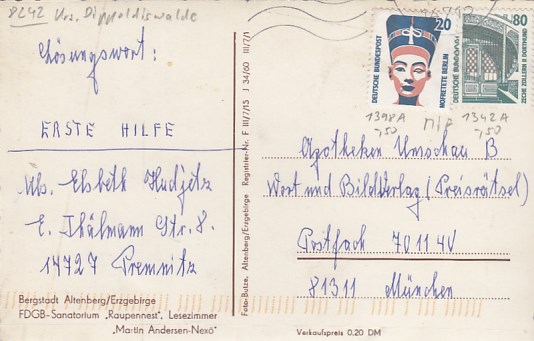 8242 Krs. Dippoldiswalde
Lösungswort:
ERSTE HILFE
Abs. Elsbeth Hudjetz
E. Thälmann Str. 8.
14727 Premnitz
Bergstadt Altenberg/Erzgebirge
FDGB-Sanatorium „Raupennest", Lesezimmer
„Martin Andersen-Nexö"
Foto-Butze, Altenberg/Erzgebirge Registrier-Nr. F III/7/15 J 34/60 III/7/1
DEUTSCHE BUNDESPOST
20
NOFRETETE BERLIN
DEUTSCHE BUNDESPOST
80
ZECHE ZOLLERN II DORTMUND
1398 A
1342 A
-,50
-,50
Apotheken Umschau B
Wort und Bildverlag (Preisrätsel)
Postfach 70 11 40
81311 München
Verkaufspreis 0,20 DM